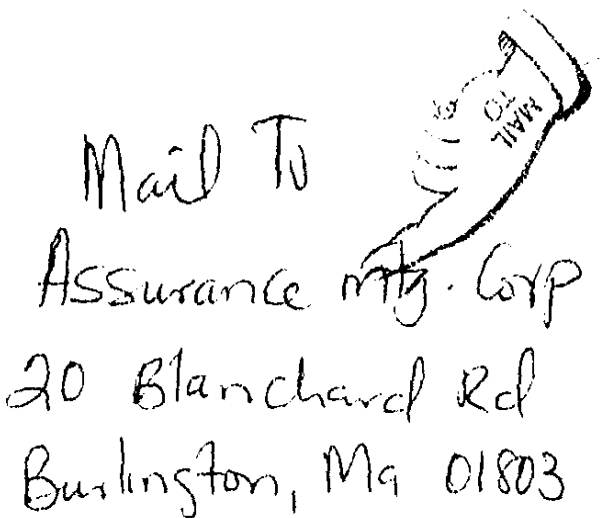 MAIL
TO
Mail To
Assurance mtg. Corp
20 Blanchard Rd
Burlington, Ma 01803